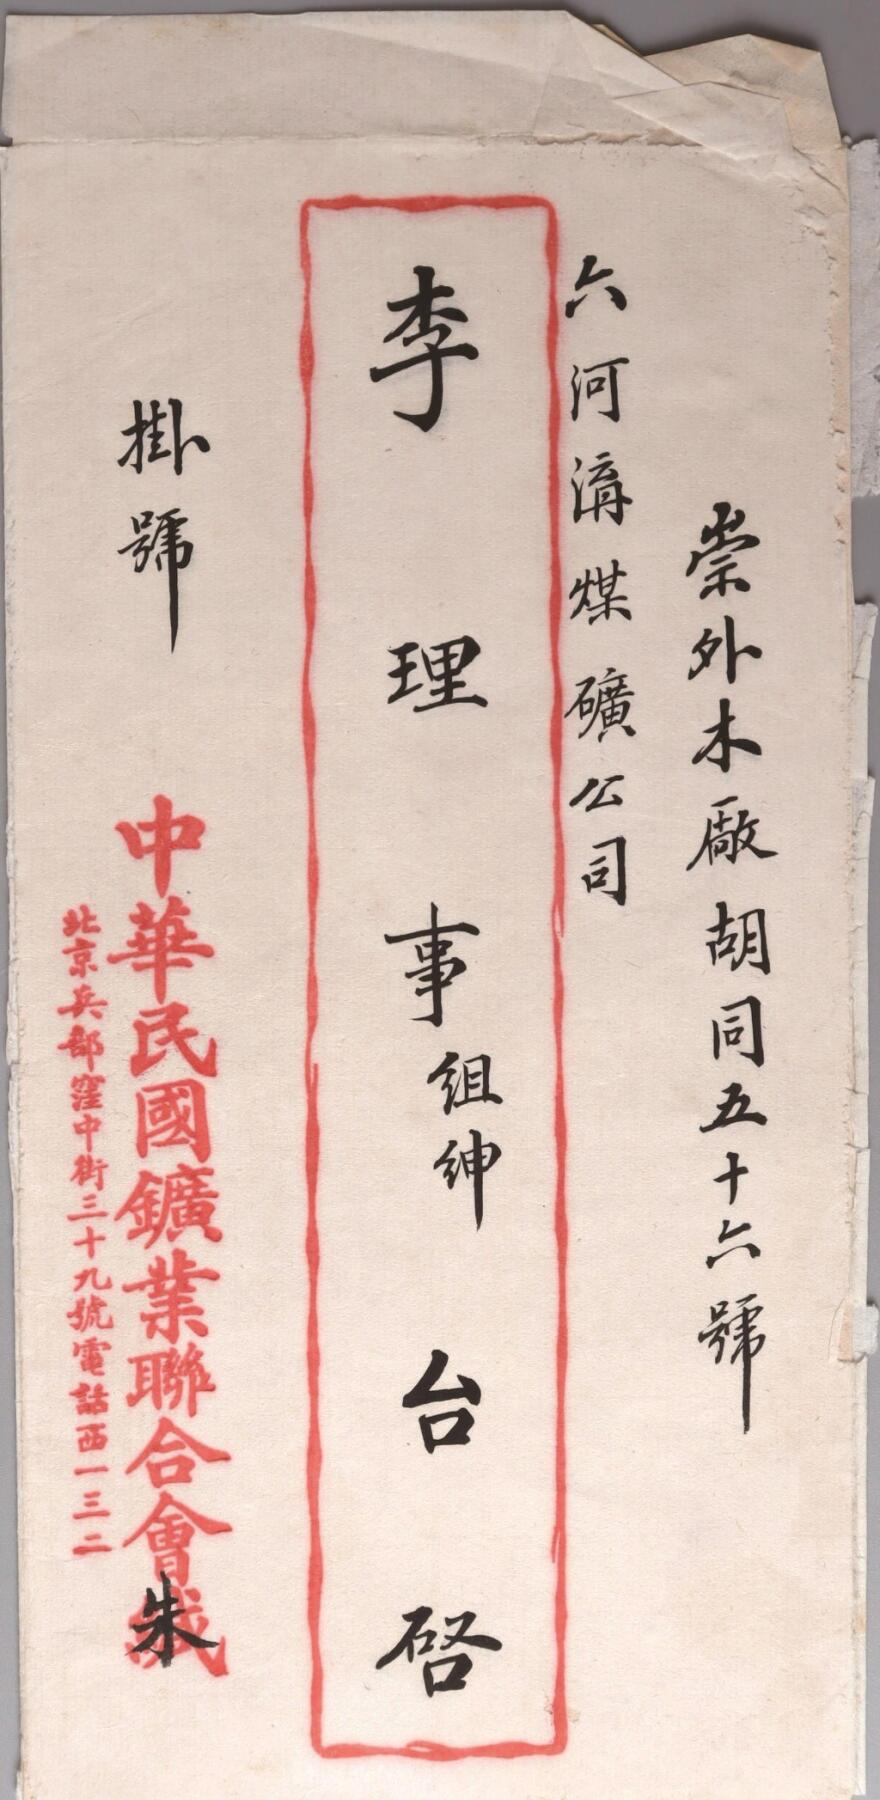 崇外木廠胡同五十六號
六河溝煤礦公司
李理事組紳台啓
掛號
中華民國鑛業聯合會緘
朱
北京兵部窪中街三十九號電話西一三二